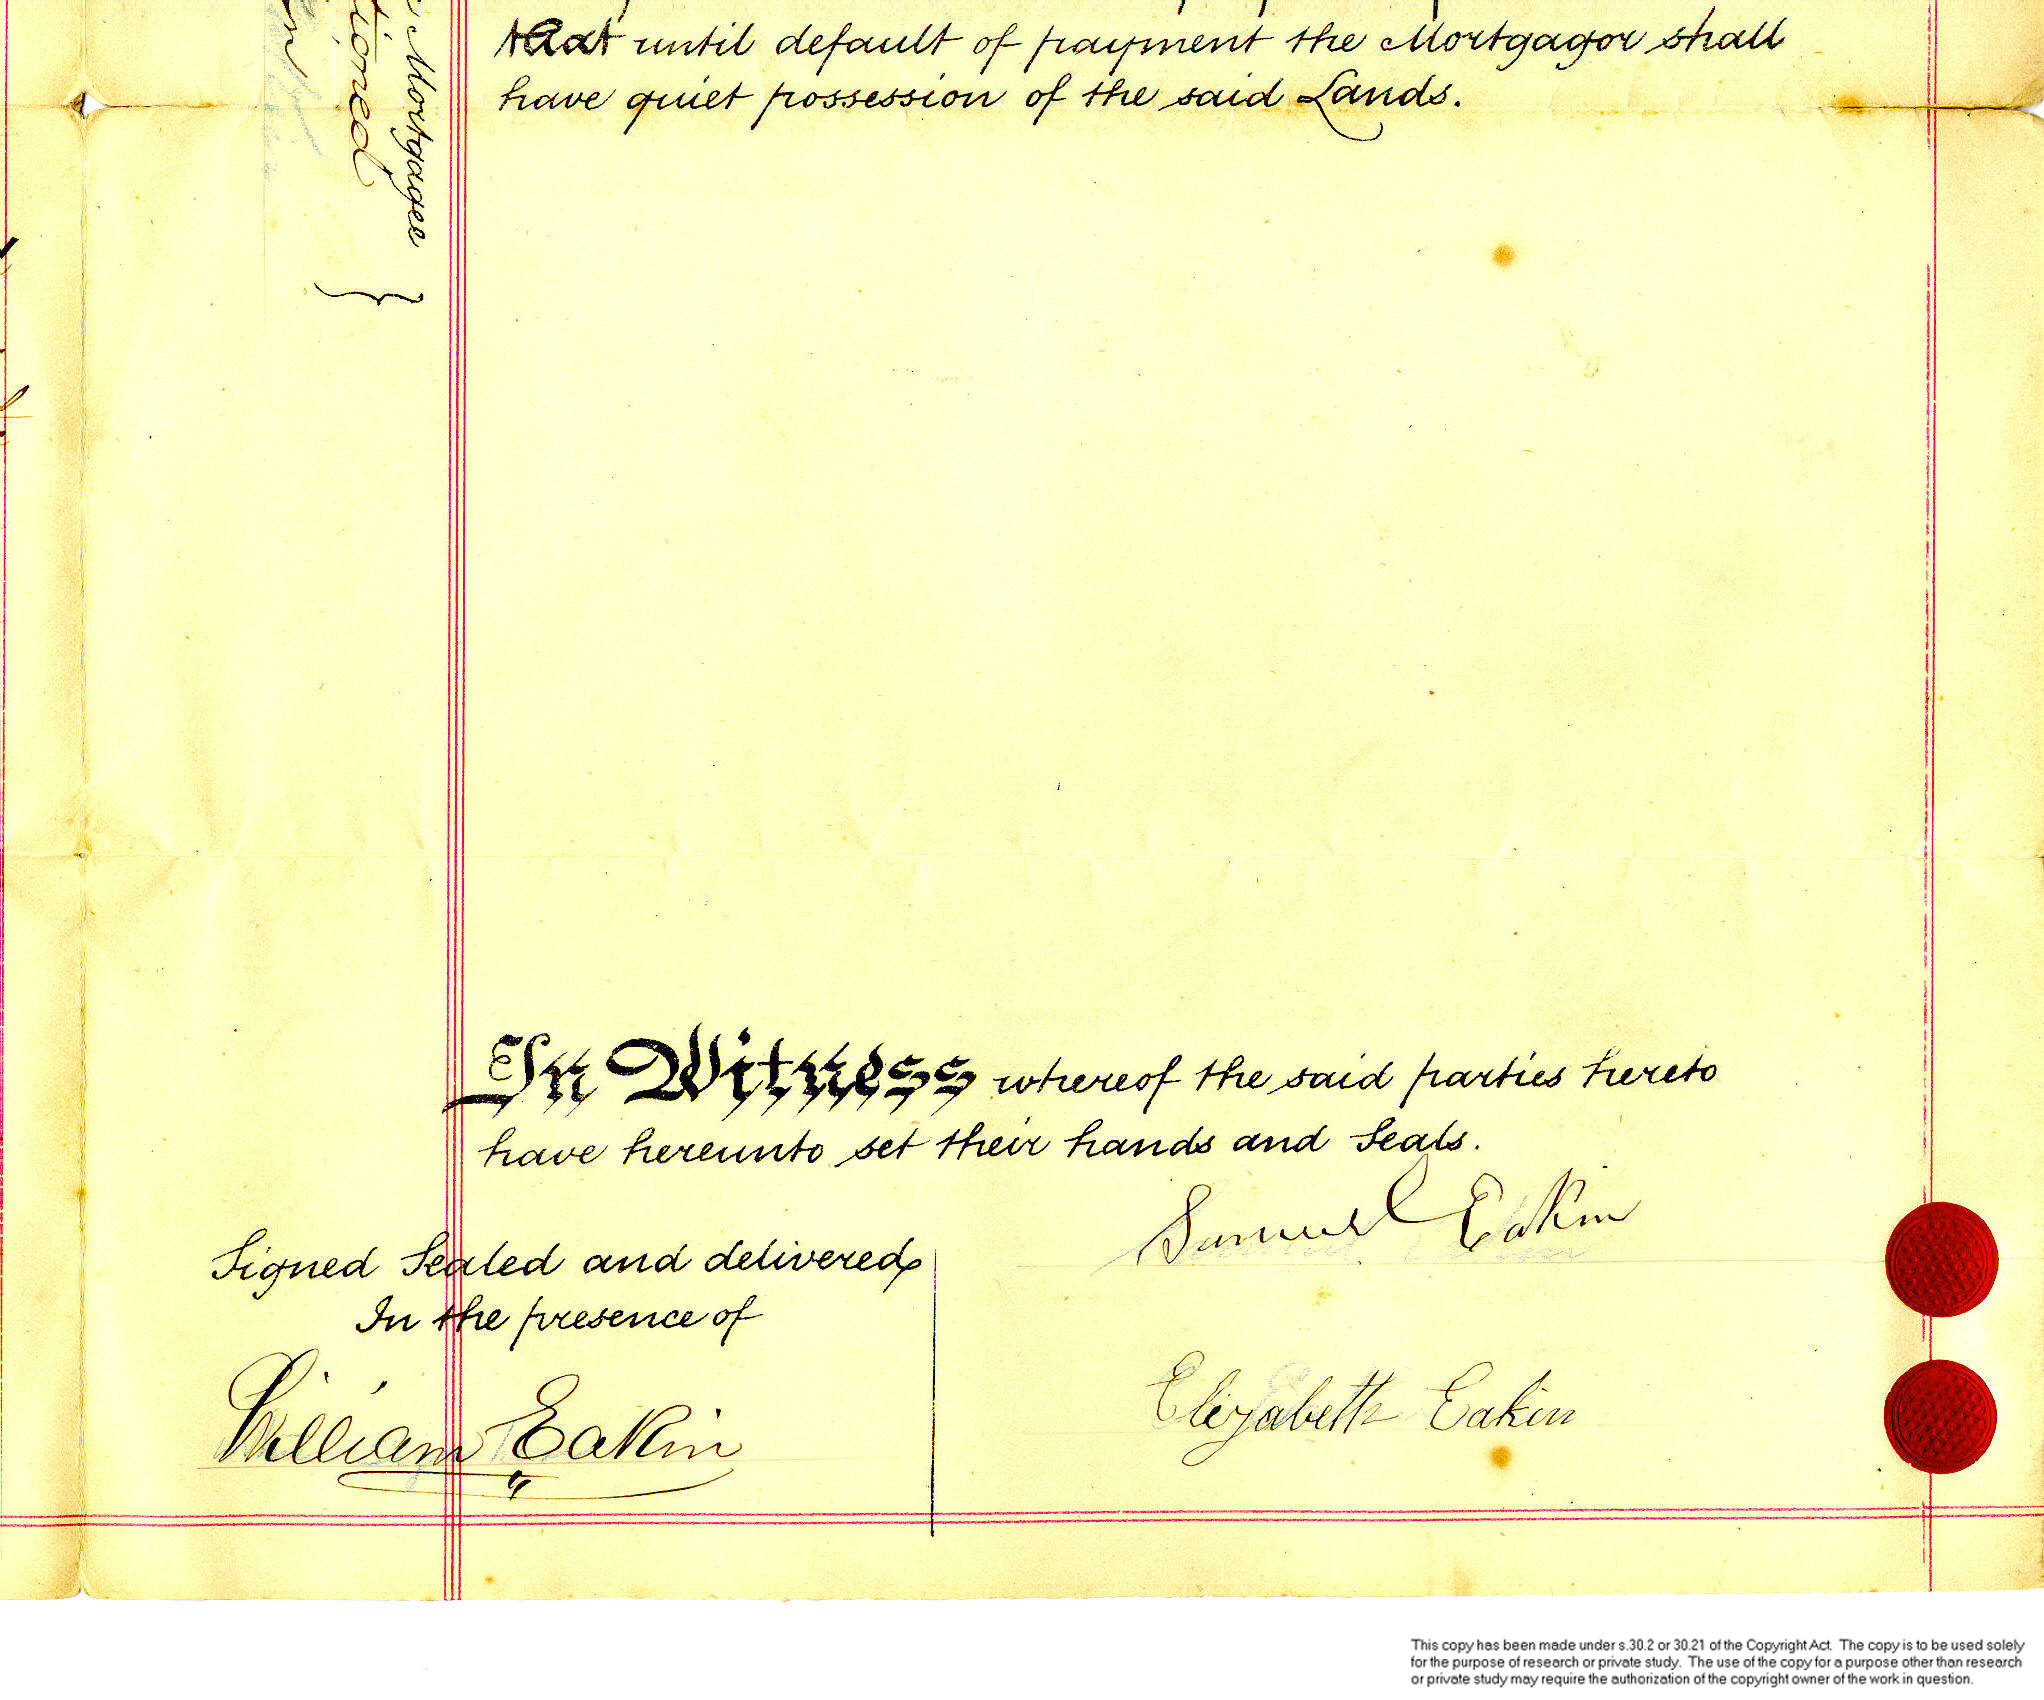 that until default of payment the Mortgagor shall
have quiet possession of the said Lands.
Mortgagee
ioned
In Witness whereof the said parties hereto
have hereunto set their hands and Seals.
Samuel Eakin
Signed Sealed and delivered
In the presence of
William Eakin
Elizabeth Eakin
This copy has been made under s.30.2 or 30.21 of the Copyright Act. The copy is to be used solely
for the purpose of research or private study. The use of the copy for a purpose other than research
or private study may require the authorization of the copyright owner of the work in question.